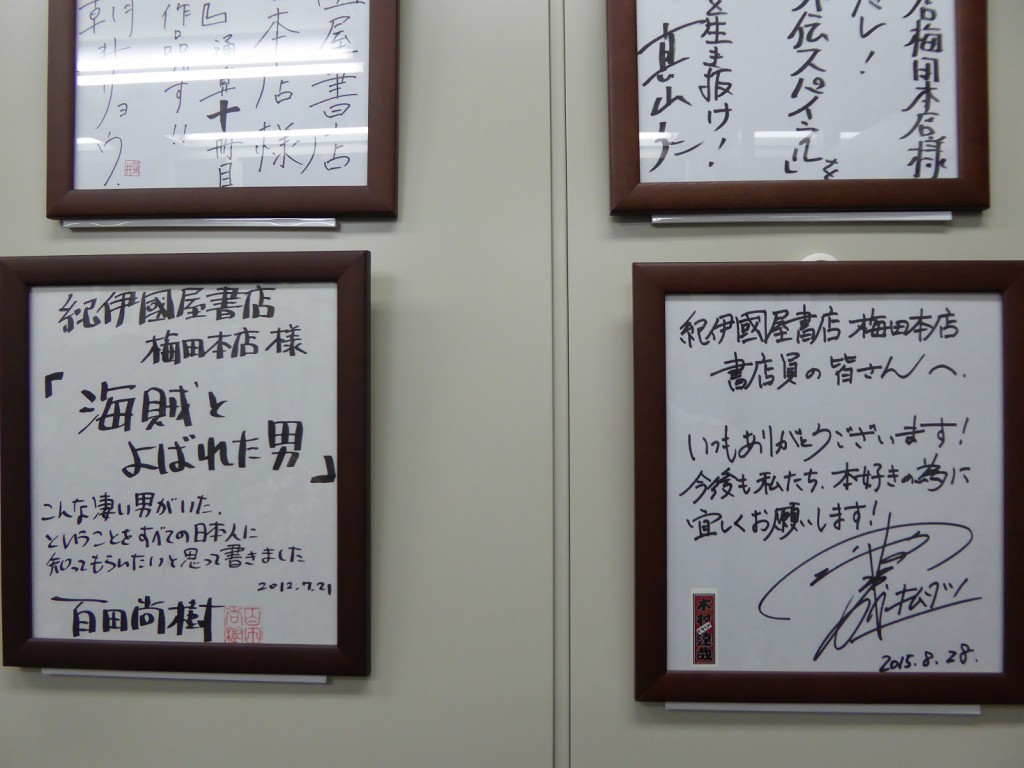 屋書店
本店様
通算十冊目
作品です!!
朝井リョウ.
梅田本店様
レ!
外伝スパイラル」を
生き抜け!
真山仁
紀伊國屋書店
梅田本店様
「海賊と
よばれた男」
こんな凄い男がいた.
ということをすべての日本人に
知ってもらいたいと思って書きました
2012.7.21
百田尚樹
紀伊國屋書店 梅田本店
書店員の皆さんへ.
いつもありがとうございます!
今後も私たち、本好きの為に
宜しくお願いします!
木村達哉
2015.8.28.